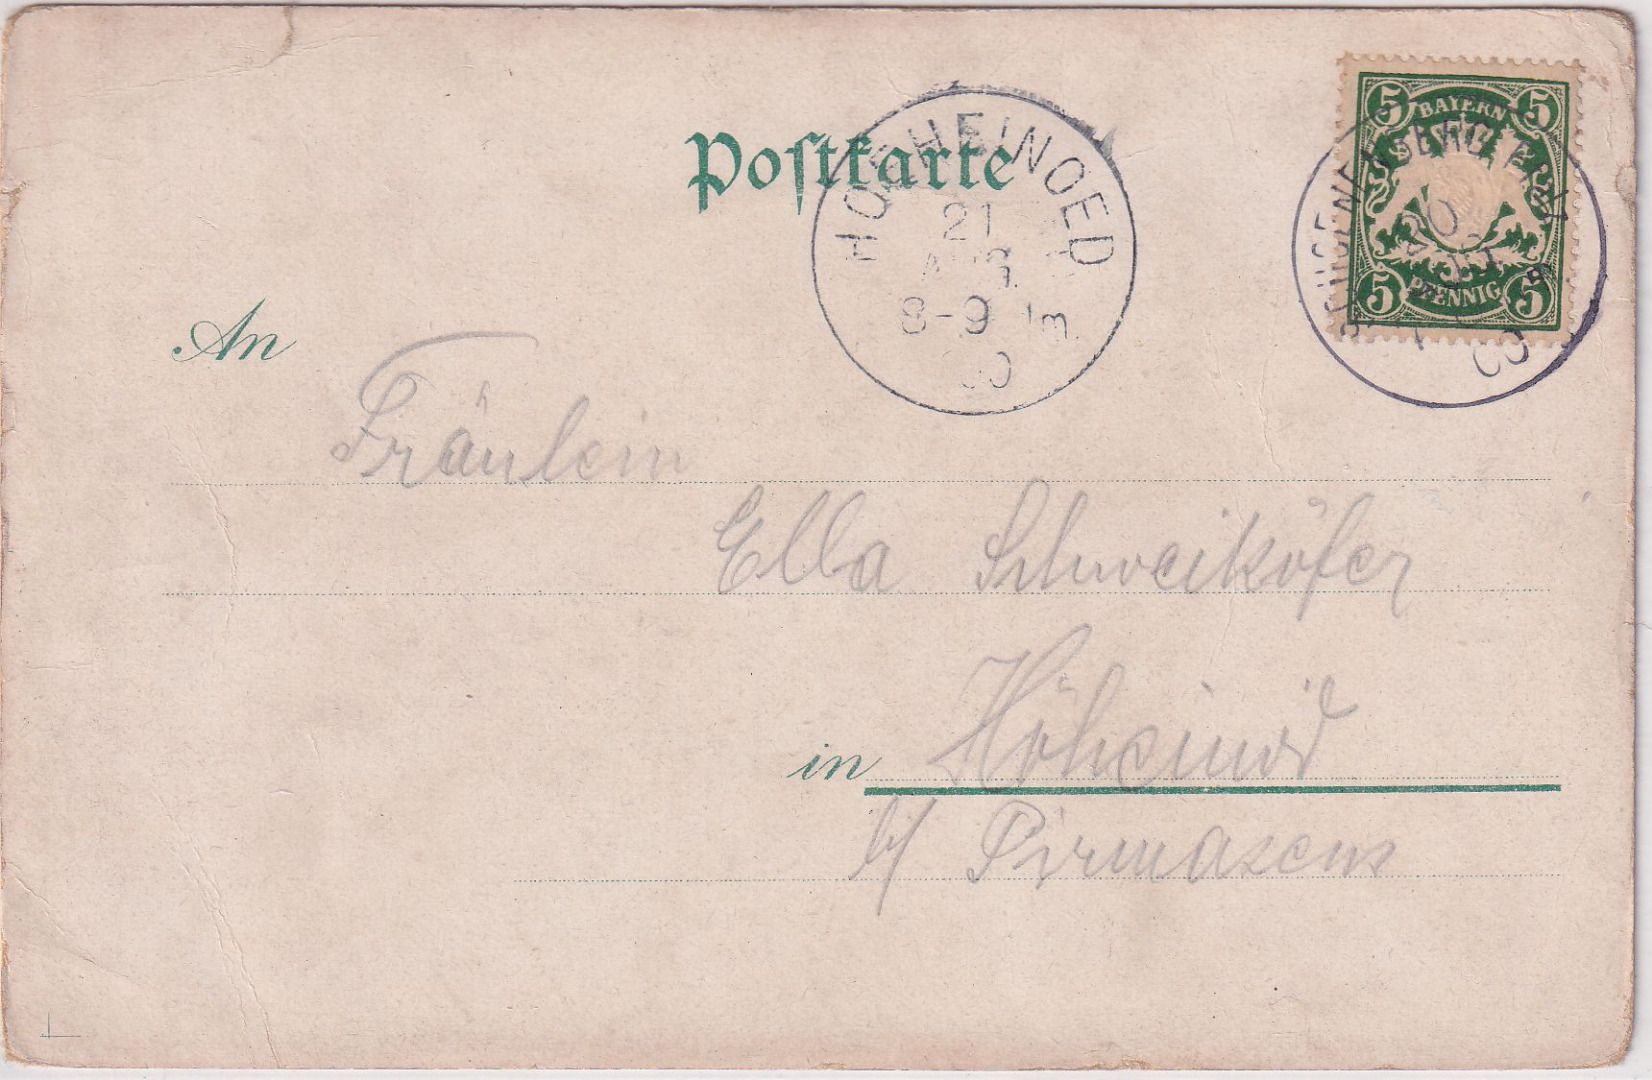 Postkarte
HOEHEINOED
21
AUG.
8-9
00
5 BAYERN 5
5 PFENNIG 5
20
00
An
Fräulein
Ella Schweiköfer
in Höheinöd
b/ Pirmasens